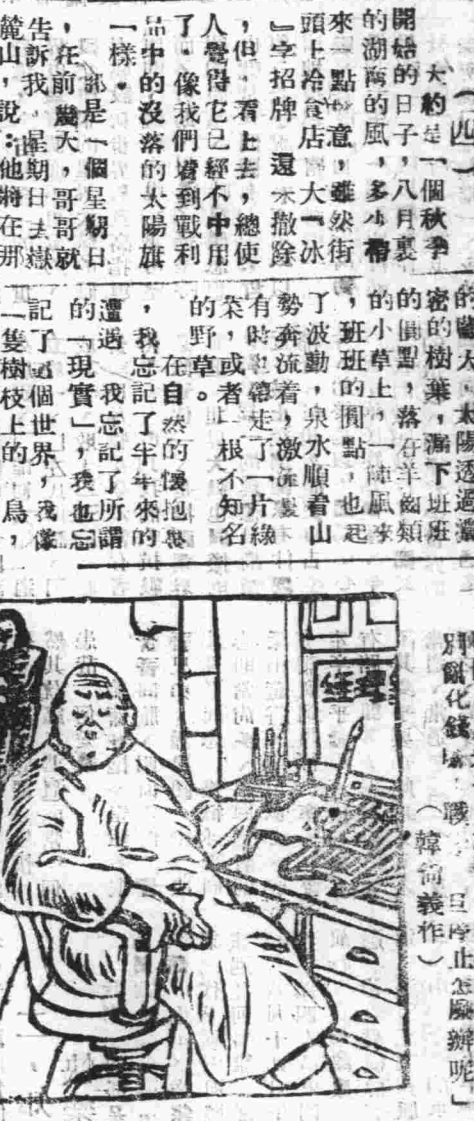 (四)
大約是一個秋季
開始的日子,八月裏
的湖南的風,多少帶
來一點秋意,雖然街
頭上冷食店大「冰
』字招牌 還未撤除
,但,看上去,總使
人覺得它已經不中用
了,像我們看到戰利
品中的沒落的太陽旗
一樣。
那是一個星期日
,在前幾天,哥哥就
告訴我,星期日去嶽
麓山,說:他將在那
天,太陽透過
密的樹葉,漏下班班
的圓點,落在羊齒類
的小草上,一陣風來
,班班的圓點,也起
了波動,泉水順着山
勢奔流着,激流裏
有時也帶走了一片綠
葉,或者一根不知名
的野草。
在自然的懷抱裏
,我忘記了半年來的
遭遇,我忘記了所謂
的「現實」,我也忘
記了這個世界,我像
一隻樹枝上的 鳥,
化錢 戰 停止怎麼辦呢」
(韓尚義作)